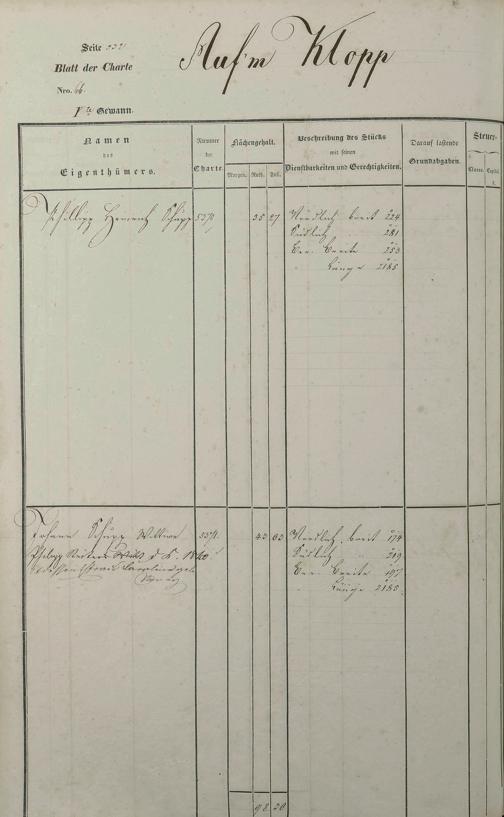 Seite
Blatt der Charte
Nro. 66.
Auf'm Klopp
Gewann.
Namen
des
Eigenthümers.
Nummer
der
Charte.
Flächengehalt.
Morgen. Ruth. Fuß.
Beschreibung des Stücks
mit seinen
Dienstbarkeiten und Gerechtigkeiten.
Darauf lastende
Grundabgaben.
Steuer-
Classe. Capital.
Phillipp Henrich Schupp 35 27 Nördlich breit 224
Südlich 281
Ber. Breite 253
Länge 2185
Johann Schupp Wittwe 43 63 Nördlich breit 174
Philipp 1840 Südlich 219
Ber. Breite 197
Länge 2185
98 20